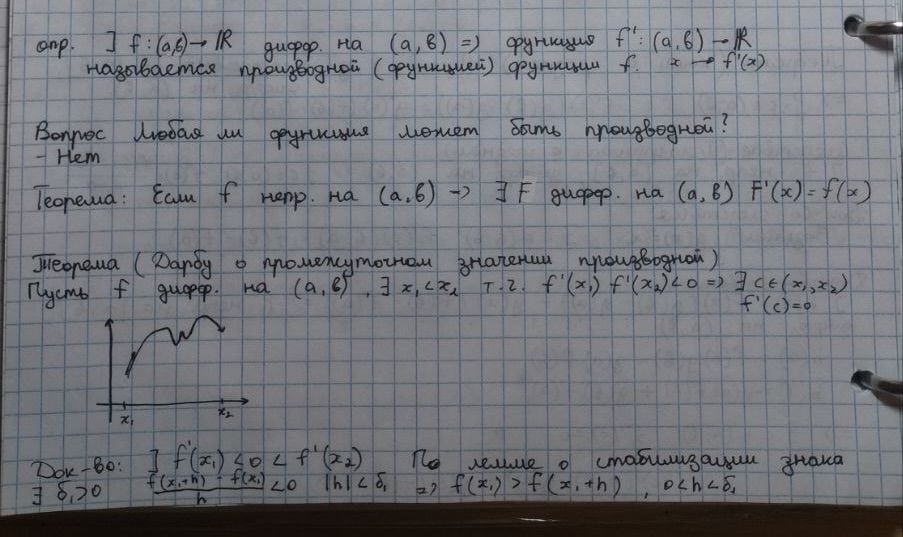 опр. ] f : (a,b) → ℝ дифф. на (a, b) => функция f' : (a, b) → ℝ
называется производной (функцией) функции f. x → f'(x)
Вопрос Любая ли функция может быть производной?
- Нет
Теорема: Если f непр. на (a, b) -> ∃ F дифф. на (a, b) F'(x) = f(x)
Теорема (Дарбу о промежуточном значении производной)
Пусть f дифф. на (a, b), ∃ x₁ < x₂ т.ч. f'(x₁) f'(x₂) < 0 => ∃ c ∈ (x₁, x₂)
f'(c) = 0
x₁ x₂
Док-во: ] f'(x₁) < 0 < f'(x₂) По лемме о стабилизации знака
∃ δ₁ > 0 (f(x₁+h) - f(x₁))/h < 0 |h| < δ₁ => f(x₁) > f(x₁+h), 0 < h < δ₁